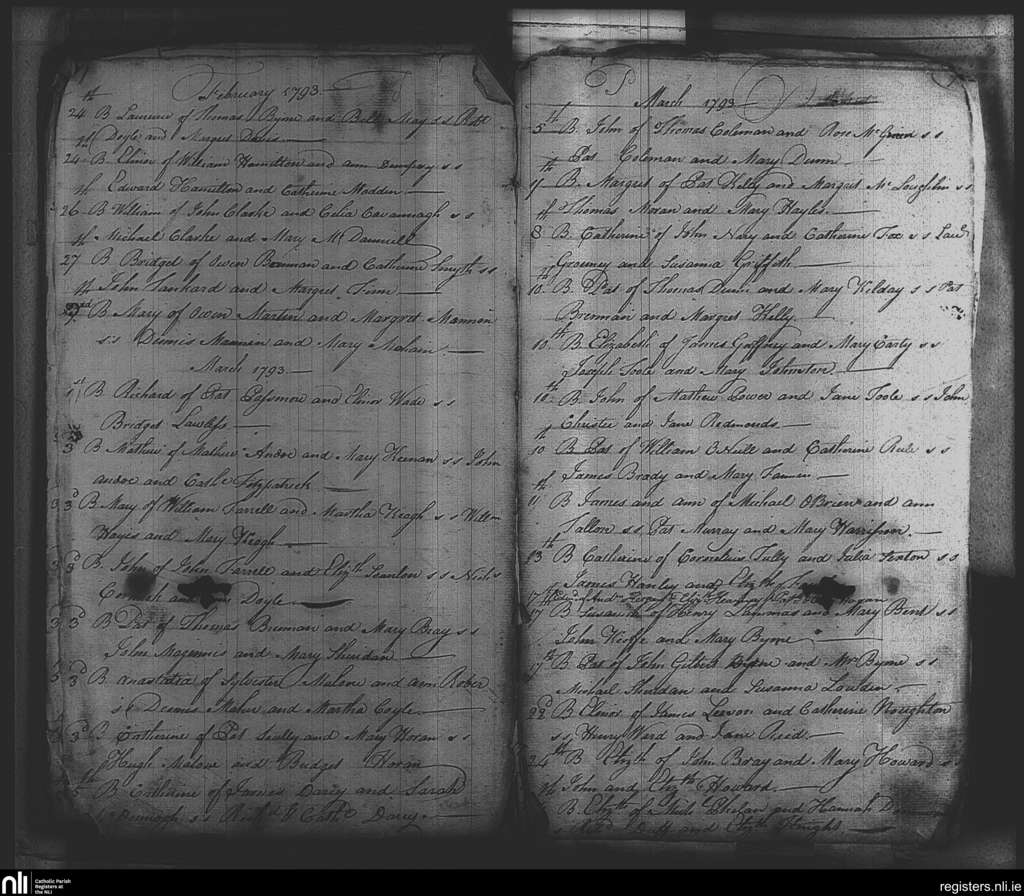 February 1793
24th B Laurence of Thomas Byrne and Bell May s s Robt
Doyle and Margret Davis
24th B. Elinor of William Hamilton and ann Dempsey s s
Edward Hamilton and Catherine Madden
26th B William of John Clarke and Celia Cavannagh s s
Michael Clarke and Mary Mc Dannell
27th B Bridget of Owen Brennan and Catherine Smyth s s
John Lanhard and Margret Finn
B. Mary of Owen Martin and Margret Mannion
s s Dennis Mannion and Mary
March 1793
1st B Richard of Pat Passmore and Elinor Wade s s
Bridget Lawless
3 B Mathew of Mathew Andoe and Mary Keenan s s John
andoe and Cathe Fitzpatrick
3d B Mary of William Farrell and Martha Keogh s s Willm
Hayes and Mary Keogh
3d B. John of John Farrell and Elizth Scanlon s s Nichs
Cormick and Doyle
3d B Pat of Thomas Brennan and Mary Bray s s
John Magennis and Mary Sheridan
3d B anastatia of Sylvester Malone and ann
s s Dennis and Martha Coyle
3d B Catherine of Pat Scully and Mary Horan s s
Hugh Malone and Bridget Horan
5th B Catherine of James Darcy and Sarah
s s Richd & Cathe Darcy
March 1793
5th B. John of Thomas Coleman and Rose Mc s s
Pat Coleman and Mary Dunn
B. Margret of Pat Kelly and Margret Mc Loughlin s s
Thomas Moran and Mary Hayles
8th B. Catherine of John Nary and Catherine Fox s s Laue
and Susanna Griffith
10th B. Pat of Thomas Dunn and Mary Kilday s s Pat
Brennan and Margret Kelly
10th B Elizabeth of James Goffney and Mary Carty s s
Joseph Toole and Mary Johnston
10th B. John of Mathew Power and Jane Toole s s John
Christie and Jane Redmonds
10th B Pat of William O Neill and Catherine s s
James Brady and Mary
11th B James and ann of Michael O Brien and ann
Fallon s s Pat Murray and Mary Harrisson
13th B Catherine of Cornelius Tully and Julia Fenton s s
James Hanley and Elizth
17th
17th B Susanna of Henry Lammas and Mary Bent s s
John Keoffe and Mary Byrne
17th B Pat of John Gilbert Byrne and Mrs Byrne s s
Michael Sheridan and Susanna
22d B Elinor of James Leeson and Catherine Noughton
s s Henry Ward and Jane Reid
24th B Elizth of John Bray and Mary Howard s s
John and Elizth Howard
B. Elizth of Mich Phelan and Hannah
and Elizth Knight
nli
Catholic Parish
Registers at
the NLI
registers.nli.ie